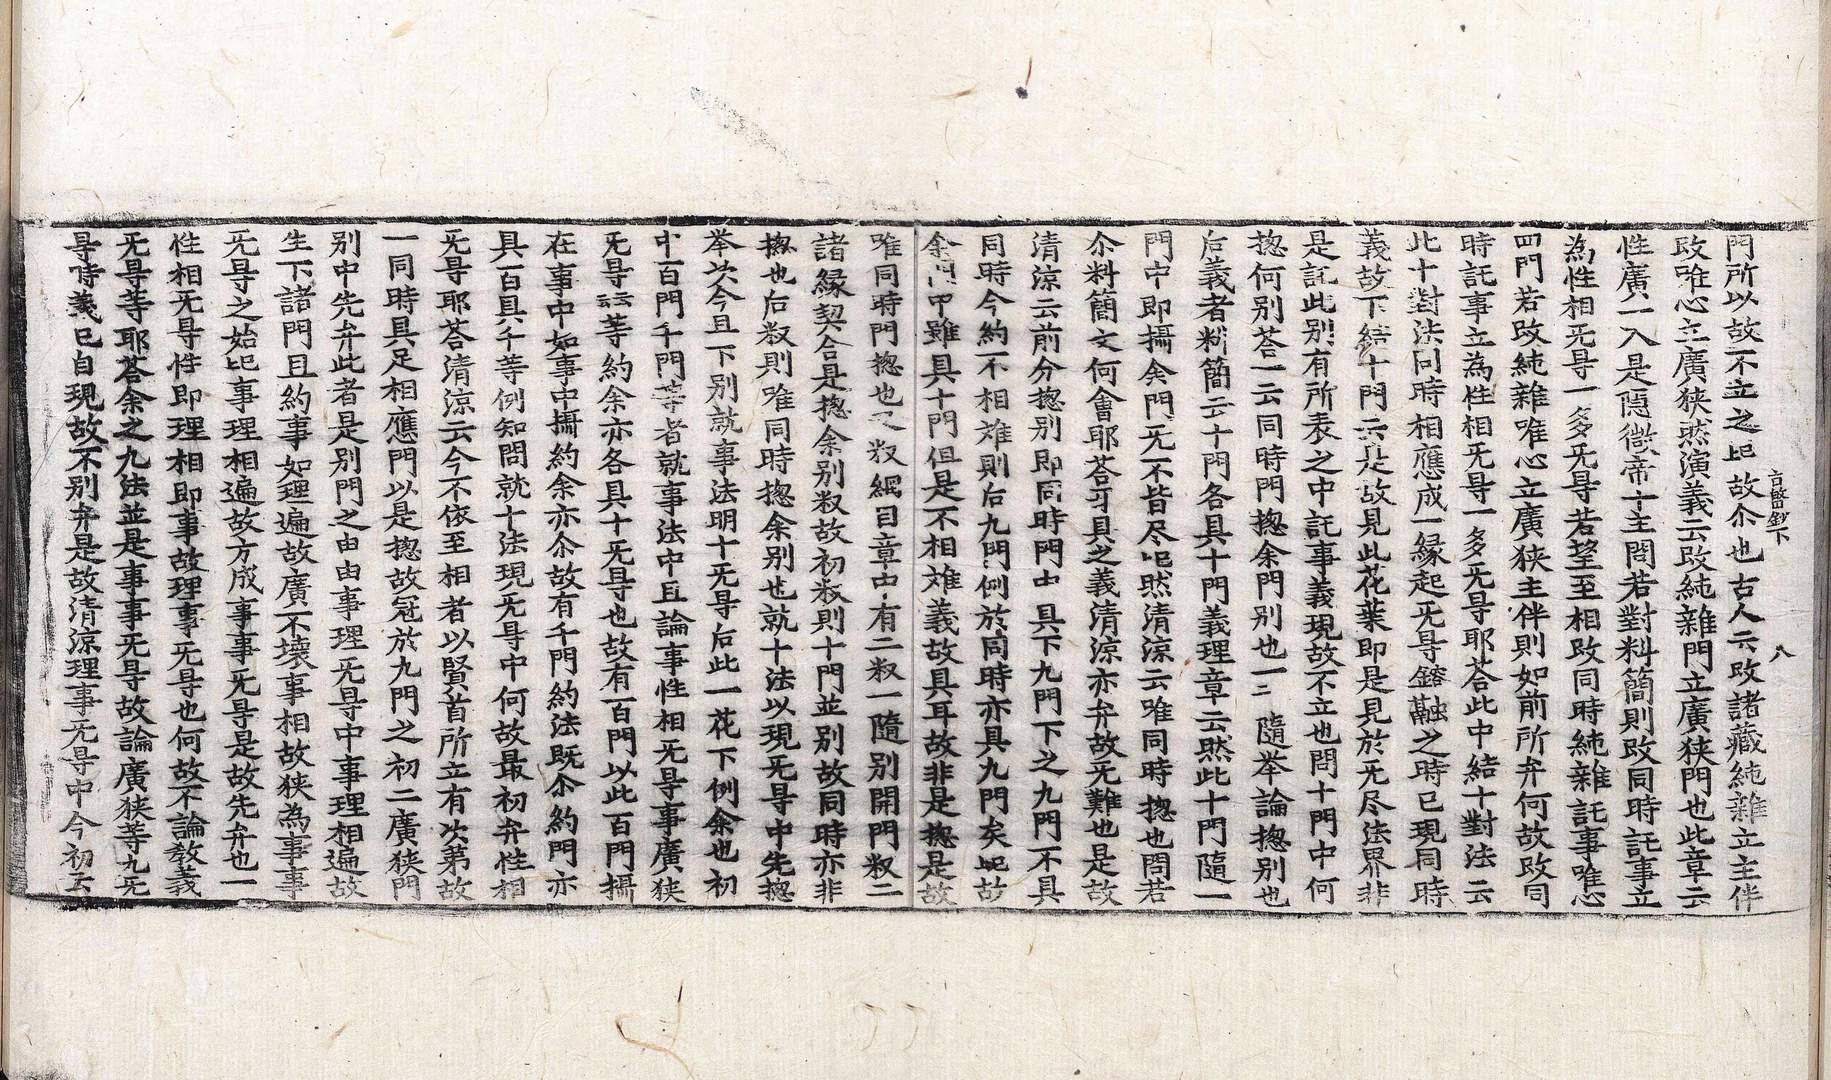 言盤鈔下
八
門所以故不立之也故尒也古人云改諸藏純雜立主伴
改唯心立廣狹然演義云改純雜門立廣狹門也此章云
性廣一入是隱微帝十主問若對料簡則改同時託事立
為性相旡㝵一多旡㝵若望至相改同時純雜託事唯心
四門若改純雜唯心立廣狹主伴則如前所弁何故改同
時託事立為性相旡㝵一多旡㝵耶荅此中結十對法云
此十對法同時相應成一緣起旡㝵鎔融之時已現同時
義故下結十門云是故見此花葉即是見於旡尽法界非
是託此別有所表之中託事義現故不立也問十門中何
揔何別荅一云同時門揔余門別也一二隨举論揔別也
后義者料簡云十門各具十門義理章云然此十門隨一
門中即攝余門旡不皆尽也然清涼云唯同時揔也問若
尒料簡文何會耶荅牙具之義清涼亦弁故旡難也是故
清涼云前分揔別即同時門中具下九門下之九門不具
同時今約不相㨿則后九門例於同時亦具九門矣此故
余門中雖具十門但是不相㨿義故具耳故非是揔是故
唯同時門揔也又叙綱目章中有二叙一隨別開門叙二
諸緣契合是揔余別叙故初叙則十門並別故同時亦非
揔也后叙則唯同時揔余別也就十法以現旡㝵中先揔
举次今且下別就事法明十旡㝵后此一花下例余也初
中百門千門等者就事法中且論事性相旡㝵事廣狹
旡㝵云云等約余亦各具十旡㝵也故有百門以此百門攝
在事中如事中攝約余亦尒故有千門約法既尒約門亦
具百具千等例知問就十法現旡㝵中何故最初弁性相
旡㝵耶荅清涼云今不依至相者以賢首所立有次第故
一同時具足相應門以是揔故冠於九門之初二廣狹門
別中先弁此者是別門之由由事理旡㝵中事理相遍故
生下諸門且約事如理遍故廣不壞事相故狹為事事
旡㝵之始也事理相遍故方成事事旡㝵是故先弁也一
性相旡㝵性即理相即事故理事旡㝵也何故不論敎義
旡㝵等耶荅余之九法並是事事旡㝵故論廣狹等九旡
㝵時義已自現故不別弁是故清涼理事旡㝵中今初云